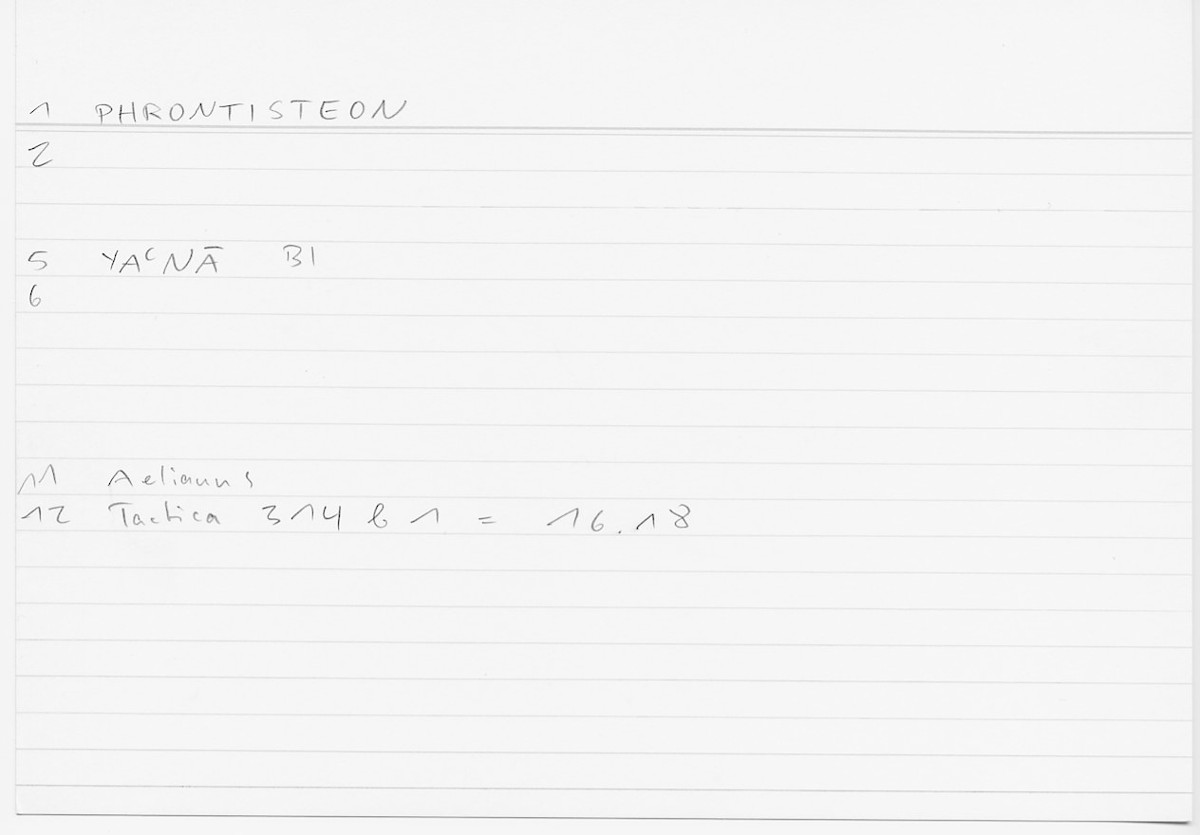 1 PHRONTISTEON
2
5 YAʿNĀ BI
6
11 Aelianus
12 Tactica 314 b 1 = 16.18